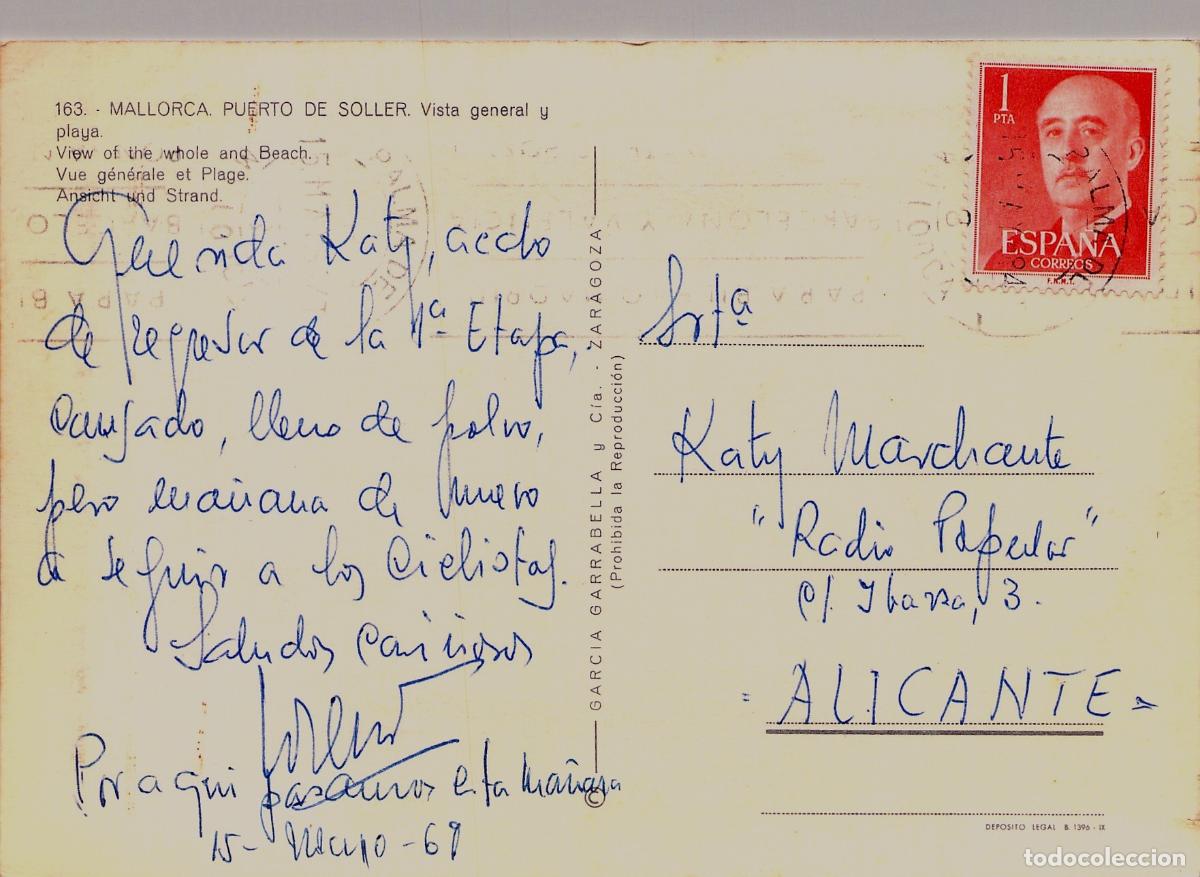 163. - MALLORCA. PUERTO DE SOLLER. Vista general y
playa.
View of the whole and Beach.
Vue générale et Plage.
Ansicht und Strand.
Querida Katy, acabo
de regresar de la 1ª Etapa,
cansado, lleno de polvo,
pero mañana de nuevo
a seguir a los ciclistas.
Saludos cariñosos
Por aqui pasamos esta mañana
15 - Mayo - 69
GARCIA GARRABELLA y Cía. - ZARAGOZA
(Prohibida la Reproducción)
©
1
PTA
ESPAÑA
CORREOS
F.N.M.T.
PALMA DE
Srtª
Katy Marchante
"Radio Popular"
c/. Ibarra, 3.
- ALICANTE -
DEPOSITO LEGAL B. 1396 - IX
todocoleccion